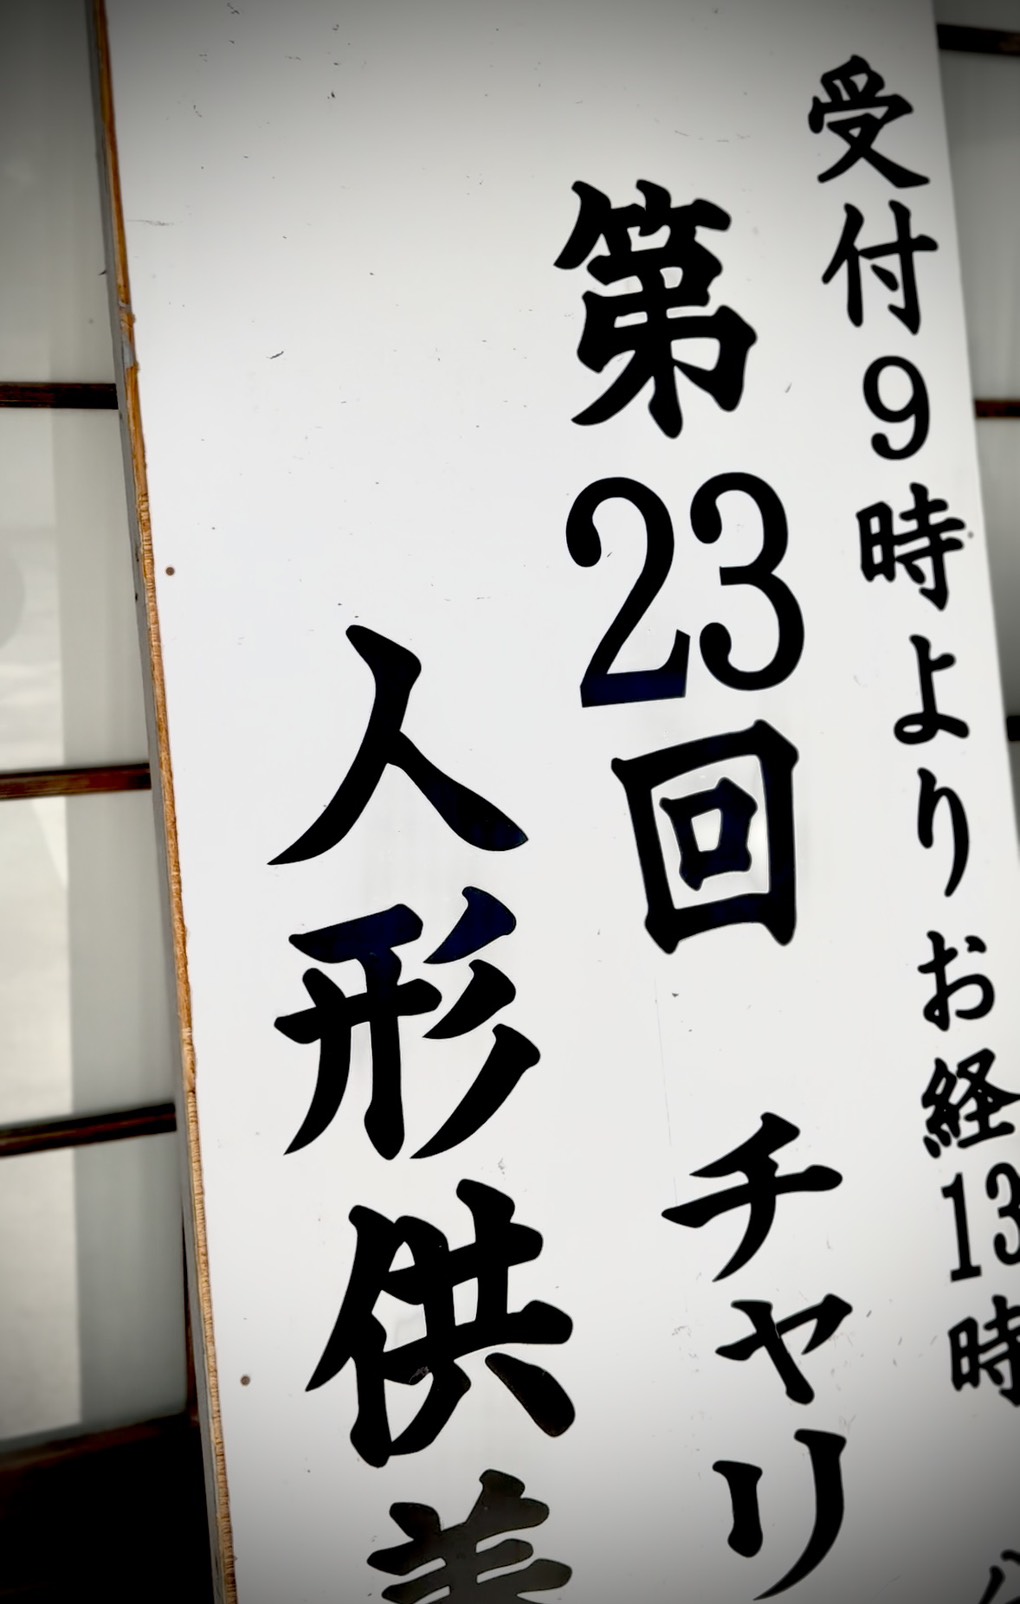 受付9時よりお経13時
第23回 チャリ
人形供養